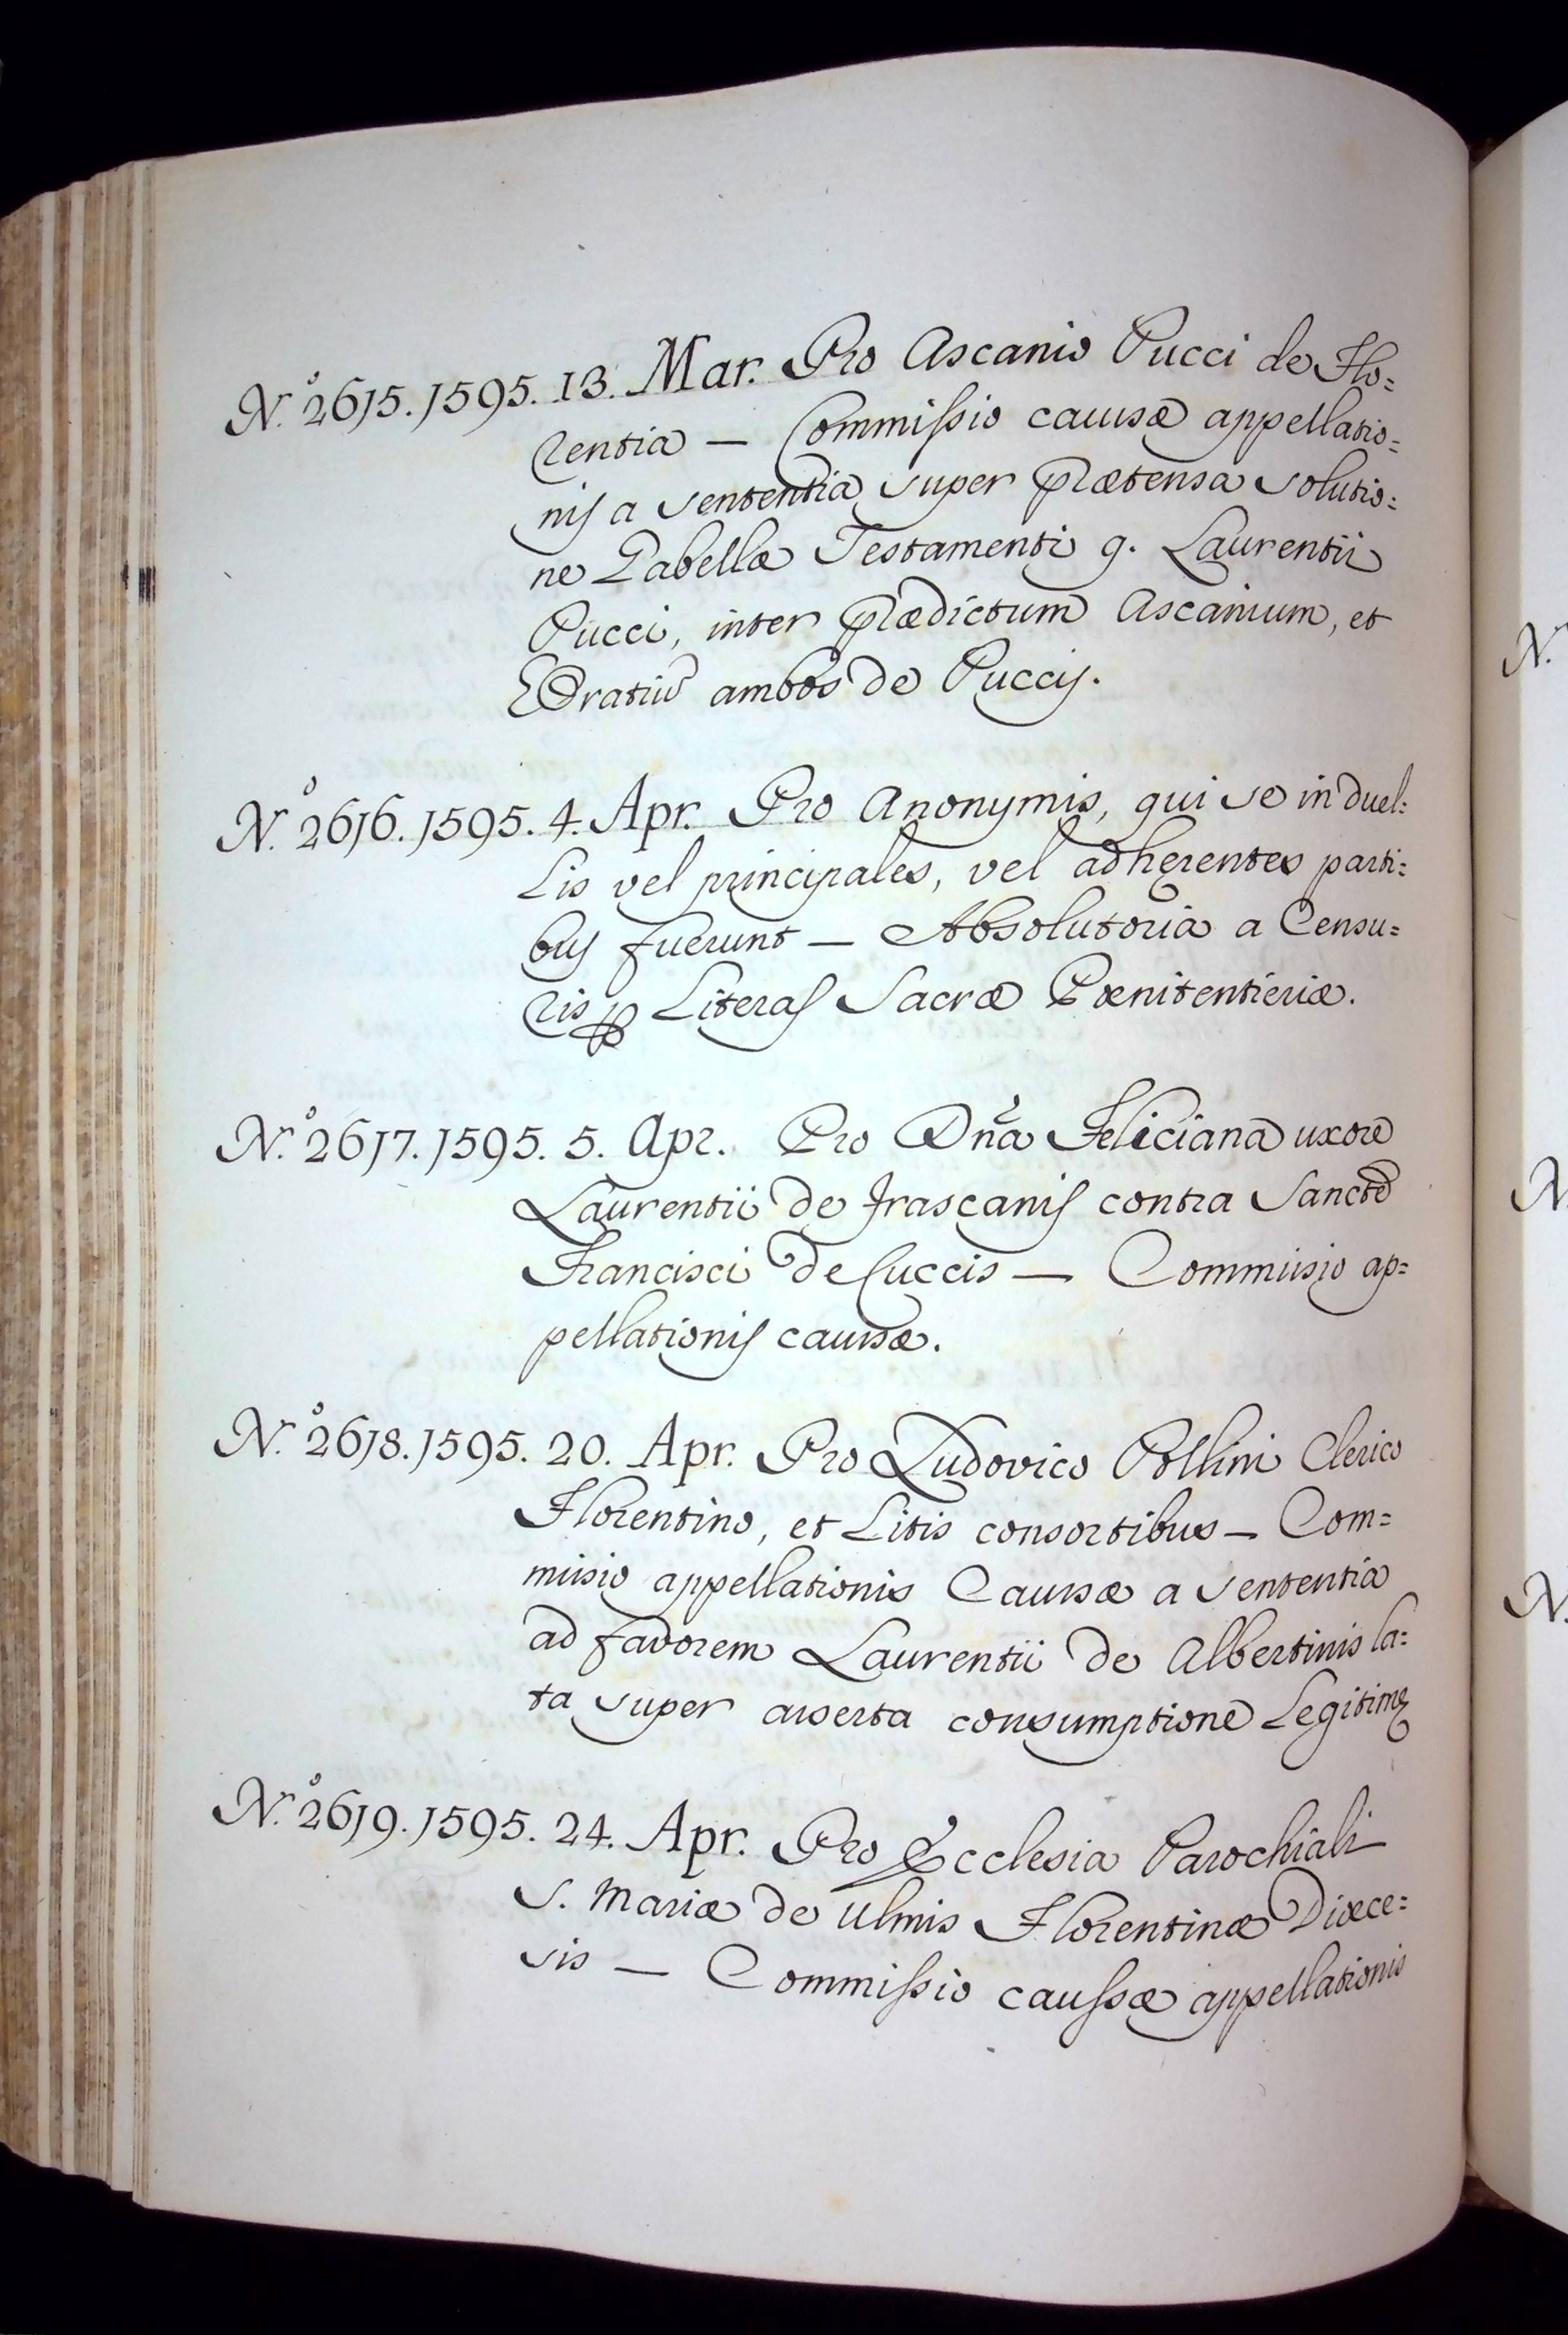 N.º 2615. 1595. 13. Mar. Pro Ascanio Pucci de Flo=
rentia — Commissio causæ appellatio=
nis a sententia super prætensa solutio=
ne Gabellæ Testamenti q. Laurentii
Pucci, inter prædictum Ascanium, et
Oratiũ ambos de Puccis.
N.º 2616. 1595. 4. Apr. Pro Anonymis, qui se in duel=
lis vel principales, vel adherentes parti=
bus fuerunt — Absolutoria a Censu=
ris ꝑ Literas Sacræ Pœnitentieriæ.
N.º 2617. 1595. 5. Apr. Pro Dña Feliciana uxore
Laurentii de Frascanis contra Sancte
Francisci de Cuccis — Commissio ap=
pellationis causæ.
N.º 2618. 1595. 20. Apr. Pro Ludovico Pollini Clerico
Florentino, et Litis consortibus — Com=
missio appellationis Causæ a sententia
ad favorem Laurentii de Albertinis la=
ta super asserta consumptione Legitimę
N.º 2619. 1595. 24. Apr. Pro Ecclesia Parochiali
S. Mariæ de Ulmis Florentinæ Diœce=
sis — Commissio caussæ appellationis
N.
N.
N.